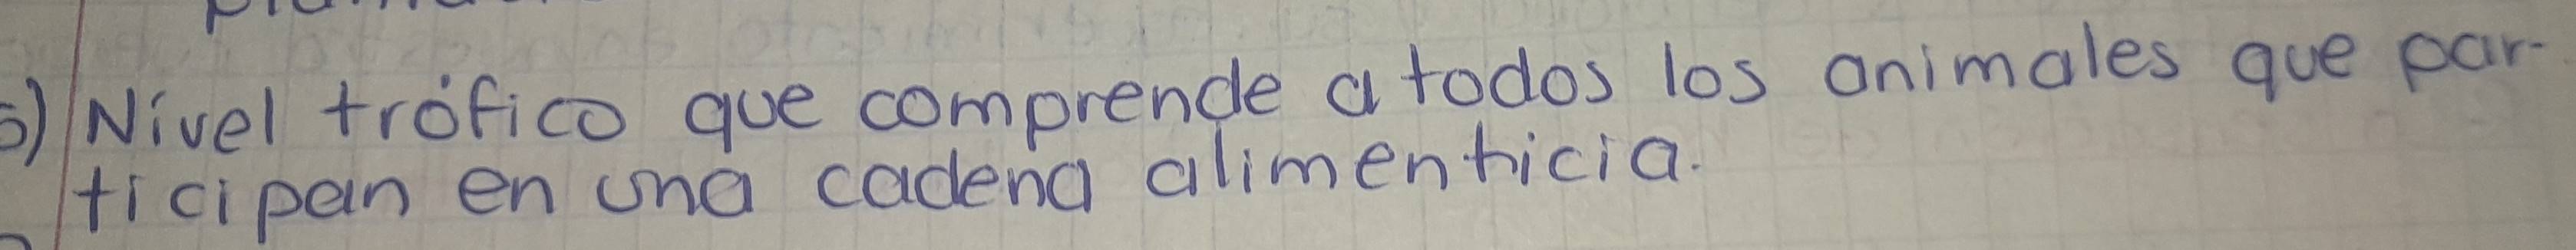 5) Nivel trófico que comprende a todos los animales que par-
ticipan en una cadena alimenticia.